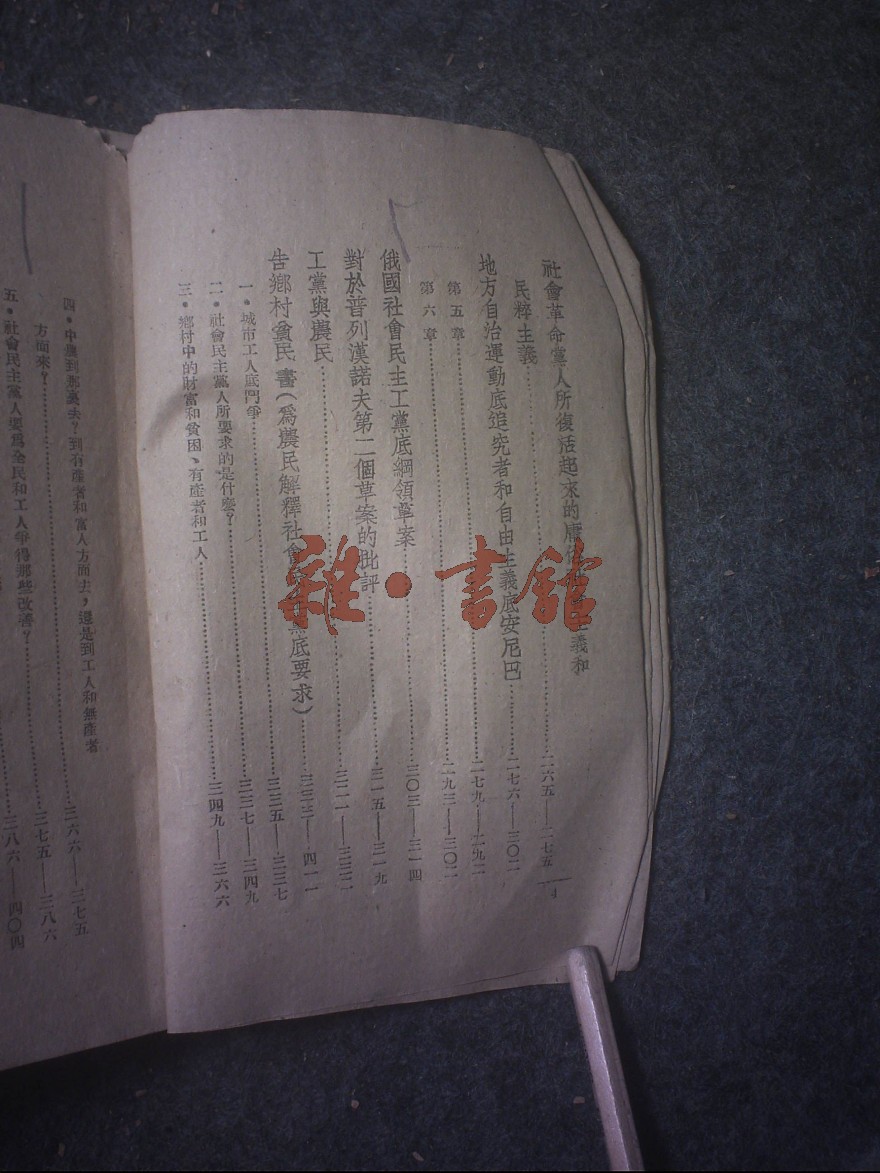 社會革命黨人所復活起來的庸俗會主義和
民粹主義……二六五——二七五
地方自治運動底追究者和自由主義底安尼巴……二七六——三〇二
第五章……二七九——二九二
第六章……二九三——三〇二
俄國社會民主工黨底綱領草案……三〇三——三一四
對於普列漢諾夫第二個草案的批評……三一五——三一九
工黨與農民……三二一——三三二
告鄉村貧民書(爲農民解釋社會黨底要求)……三三三——四一一
一•城市工人底鬥爭……三三五——三三七
二•社會民主黨人所要求的是什麼?……三三七——三四九
三•鄉村中的財富和貧困、有產者和工人……三四九——三六六
四•中農到那裏去?到有產者和富人方面去,還是到工人和無產者
方面來?……三六六——三七五
五•社會民主黨人要爲全民和工人爭得那些改善?……三七五——三八六
三八六——四〇四
雜•書館